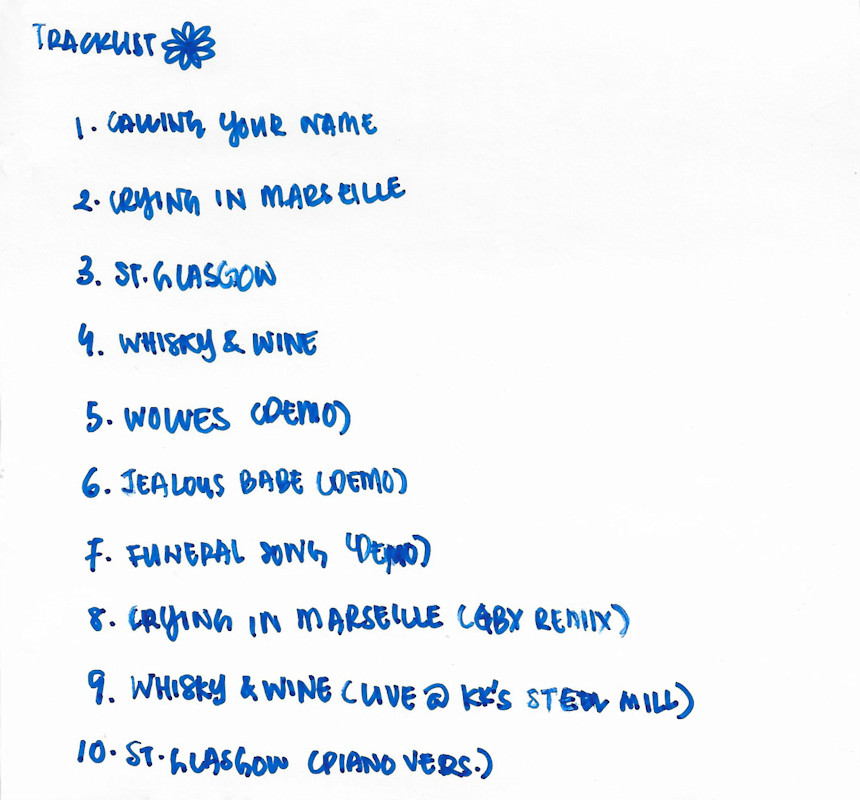 TRACKLIST
1. CALLING YOUR NAME
2. CRYING IN MARSEILLE
3. ST. GLASGOW
4. WHISKY & WINE
5. WOLVES (DEMO)
6. JEALOUS BABE (DEMO)
7. FUNERAL SONG (DEMO)
8. CRYING IN MARSEILLE (GBX REMIX)
9. WHISKY & WINE (LIVE @ KK'S STEEL MILL)
10. ST. GLASGOW (PIANO VERS.)